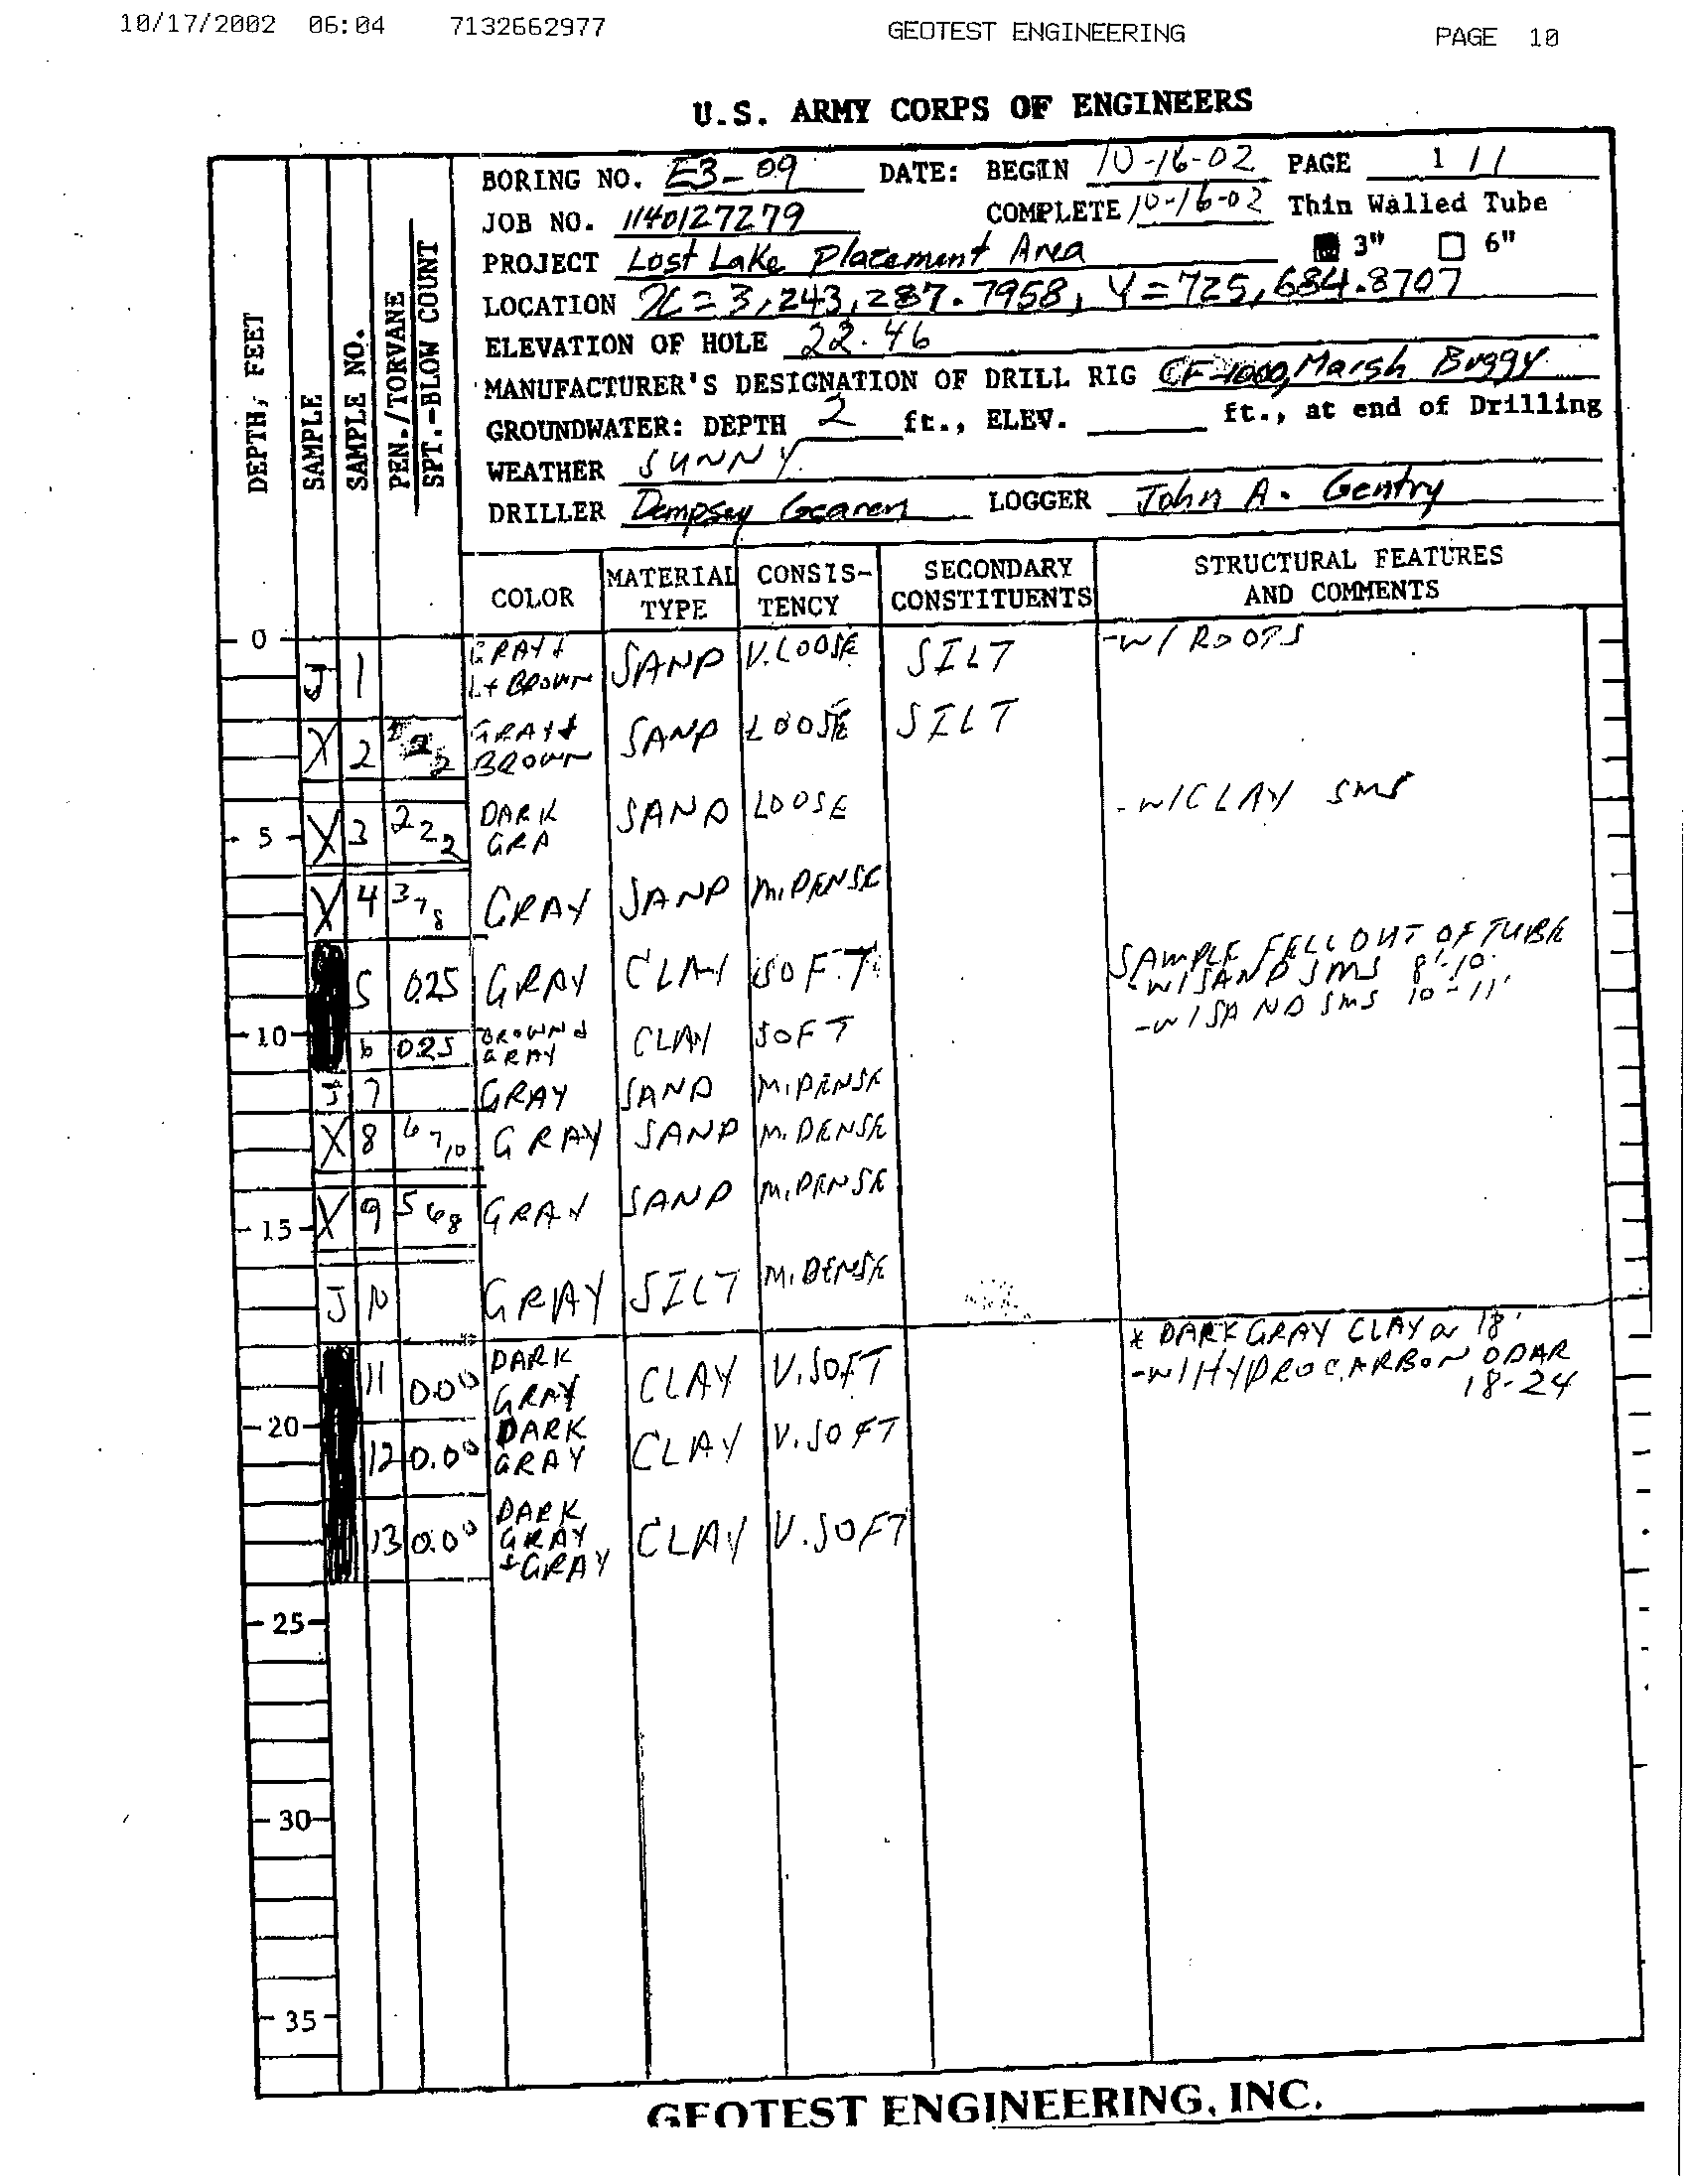 10/17/2002 06:04 7132662977 GEOTEST ENGINEERING PAGE 10
U.S. ARMY CORPS OF ENGINEERS
DEPTH, FEET
SAMPLE
SAMPLE NO.
PEN./TORVANE
SPT.-BLOW COUNT
BORING NO. E3-09 DATE: BEGIN 10-16-02 PAGE 1 / 1
JOB NO. 1140127279 COMPLETE 10-16-02 Thin Walled Tube
PROJECT Lost Lake Placement Area 3" 6"
LOCATION X = 3,243,287.7958, Y = 725,684.8707
ELEVATION OF HOLE 22.46
MANUFACTURER'S DESIGNATION OF DRILL RIG CF-1000, Marsh Buggy
GROUNDWATER: DEPTH 2 ft., ELEV. ft., at end of Drilling
WEATHER SUNNY
DRILLER Dempsey Gearen LOGGER John A. Gentry
COLOR MATERIAL TYPE CONSIS-TENCY SECONDARY CONSTITUENTS STRUCTURAL FEATURES AND COMMENTS
0 J 1 GRAY & Lt BROWN SAND V. LOOSE SILT -W/ ROOTS
X 2 2 2 2 GRAY & BROWN SAND LOOSE SILT
5 X 3 2 2 2 DARK GRA SAND LOOSE -W/CLAY SMS
X 4 3 7 8 GRAY SAND M. DENSE
5 0.25 GRAY CLAY SOFT SAMPLE FELL OUT OF TUBE
-W/SAND SMS 8'-10'
10 6 0.25 BROWN & GRAY CLAY SOFT -W/SAND SMS 10-11'
J 7 GRAY SAND M. DENSE
X 8 6 7 10 GRAY SAND M. DENSE
15 X 9 5 6 8 GRAY SAND M. DENSE
J 10 GRAY SILT M. DENSE
* DARK GRAY CLAY @ 18'
11 0.00 DARK GRAY CLAY V. SOFT -W/HYDROCARBON ODAR 18-24
20 12 0.00 DARK GRAY CLAY V. SOFT
13 0.00 DARK GRAY & GRAY CLAY V. SOFT
25
30
35
GEOTEST ENGINEERING, INC.